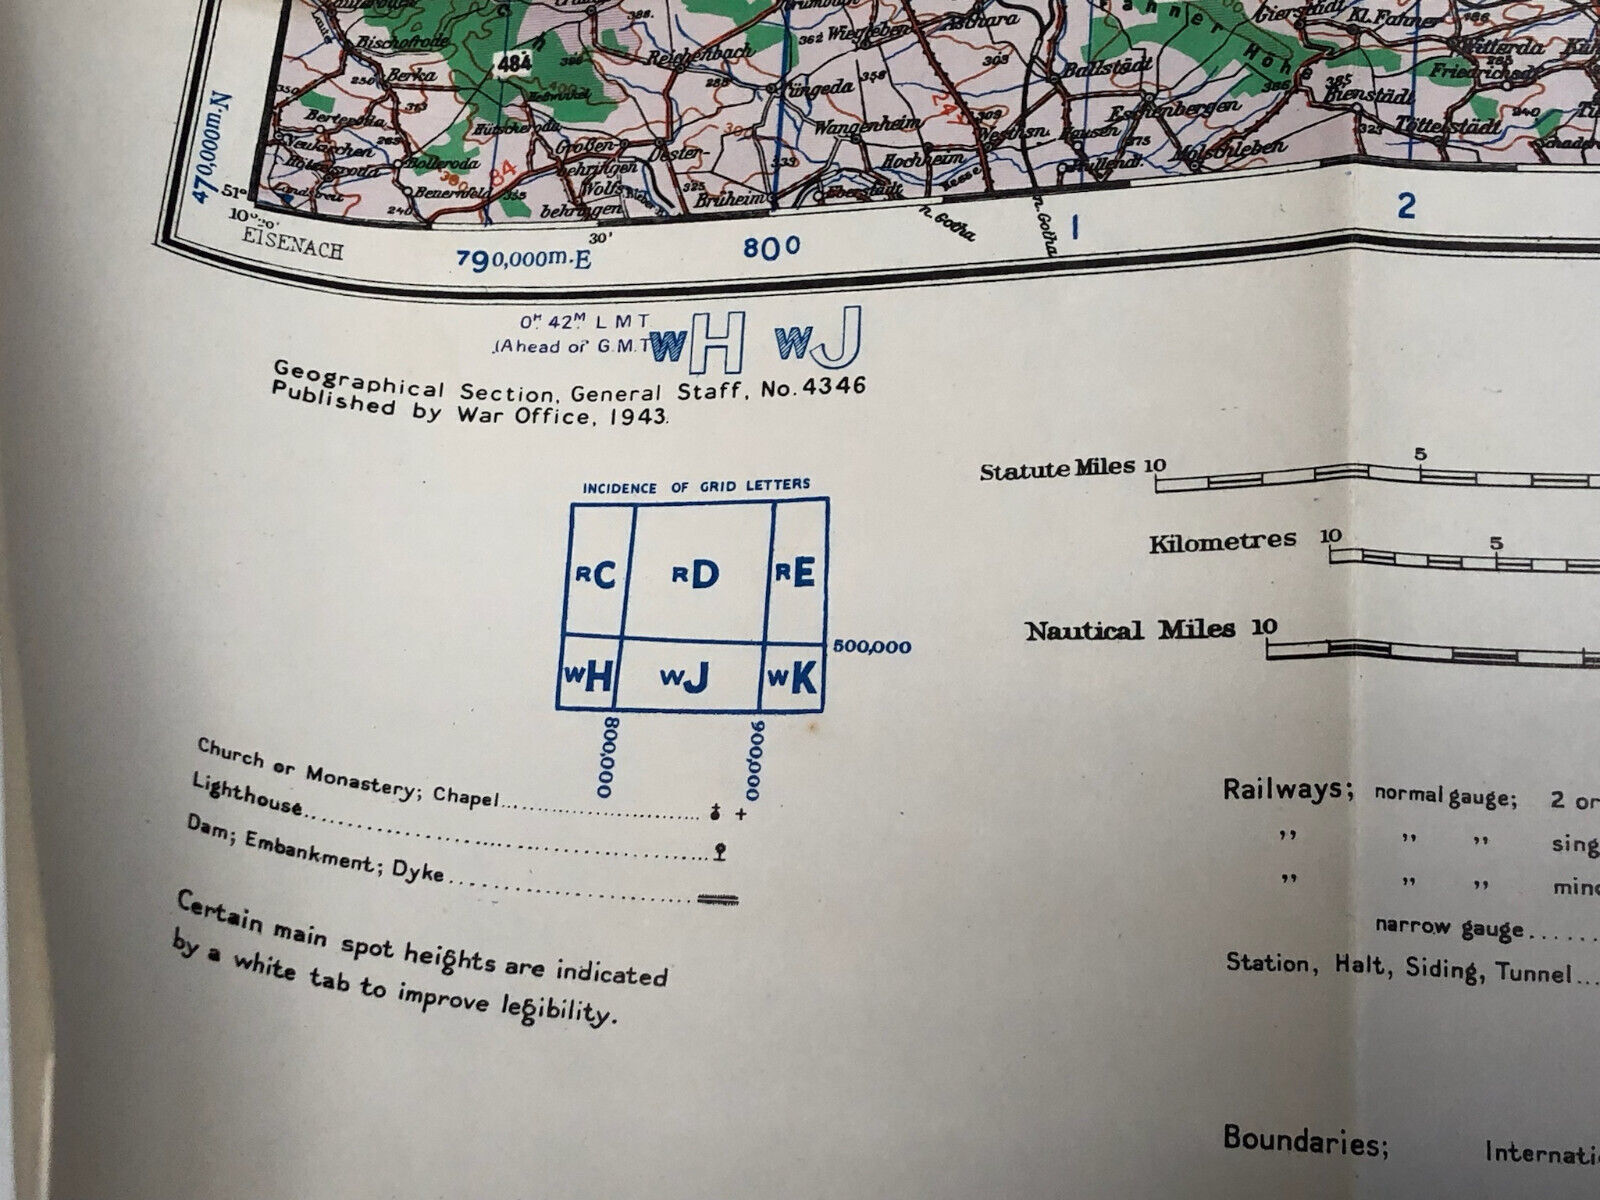 484
388.
386
Bischofrode
Berka
Reichenbach
362 Wiegleben
Asthara
Gierstädt
Kl. Fahner
Witterda
Friedrichsdf
Fahner Höhe
303
358
Ballstädt
385
386
Bienstädt
Eschenbergen
Töttelstädt
240
323
350
250
363
263
Berteroda
Neukirchen
Hütscheroda
Großen-
behringen
Oester-
Wolfs
behringen
Bolleroda
Beuernfeld
84
355
240
288
Tüngeda
Wangenheim
309
Westhsn.
Hausen
275
Molschleben
Hochheim
Nesse
333
325
Brüheim
Eberstädt
470,000m.N
51°
10°20'
EISENACH
790,000m.E
30'
800
n. Gotha
n. Gotha
1
2
0H 42M L M T
(Ahead of G.M.T
wH wJ
Geographical Section, General Staff, No. 4346
Published by War Office, 1943.
INCIDENCE OF GRID LETTERS
RC RD RE
500,000
wH wJ wK
800,000
900,000
Statute Miles 10 5
Kilometres 10 5
Nautical Miles 10
Church or Monastery; Chapel........................... +
Lighthouse...........................
Dam; Embankment; Dyke...........................
Certain main spot heights are indicated
by a white tab to improve legibility.
Railways; normal gauge; 2 or
,, ,, ,, sing
,, ,, ,, mino
narrow gauge......
Station, Halt, Siding, Tunnel...
Boundaries; Internati